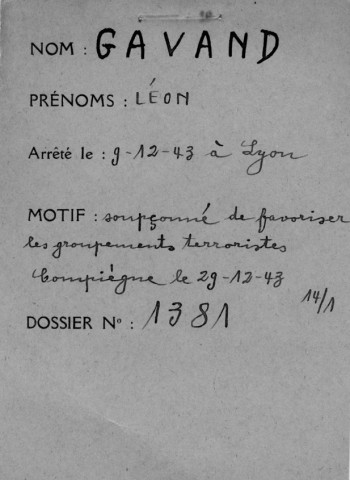 NOM : GAVAND
PRÉNOMS : LÉON
Arrêté le : 9-12-43 à Lyon
MOTIF : soupçonné de favoriser
les groupements terroristes
Compiègne le 29-12-43
14/1
DOSSIER Nº : 1381